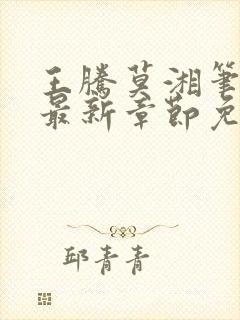 王騰莫湘筆
最新章節免
邱青青